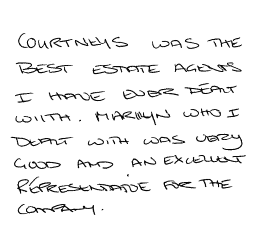 COURTNEYS WAS THE
BEST ESTATE AGENTS
I HAVE EVER DEALT
WIITH. MARILYN WHO I
DEALT WITH WAS VERY
GOOD AND AN EXCELLENT
REPRESENTATIVE FOR THE
COMPANY.